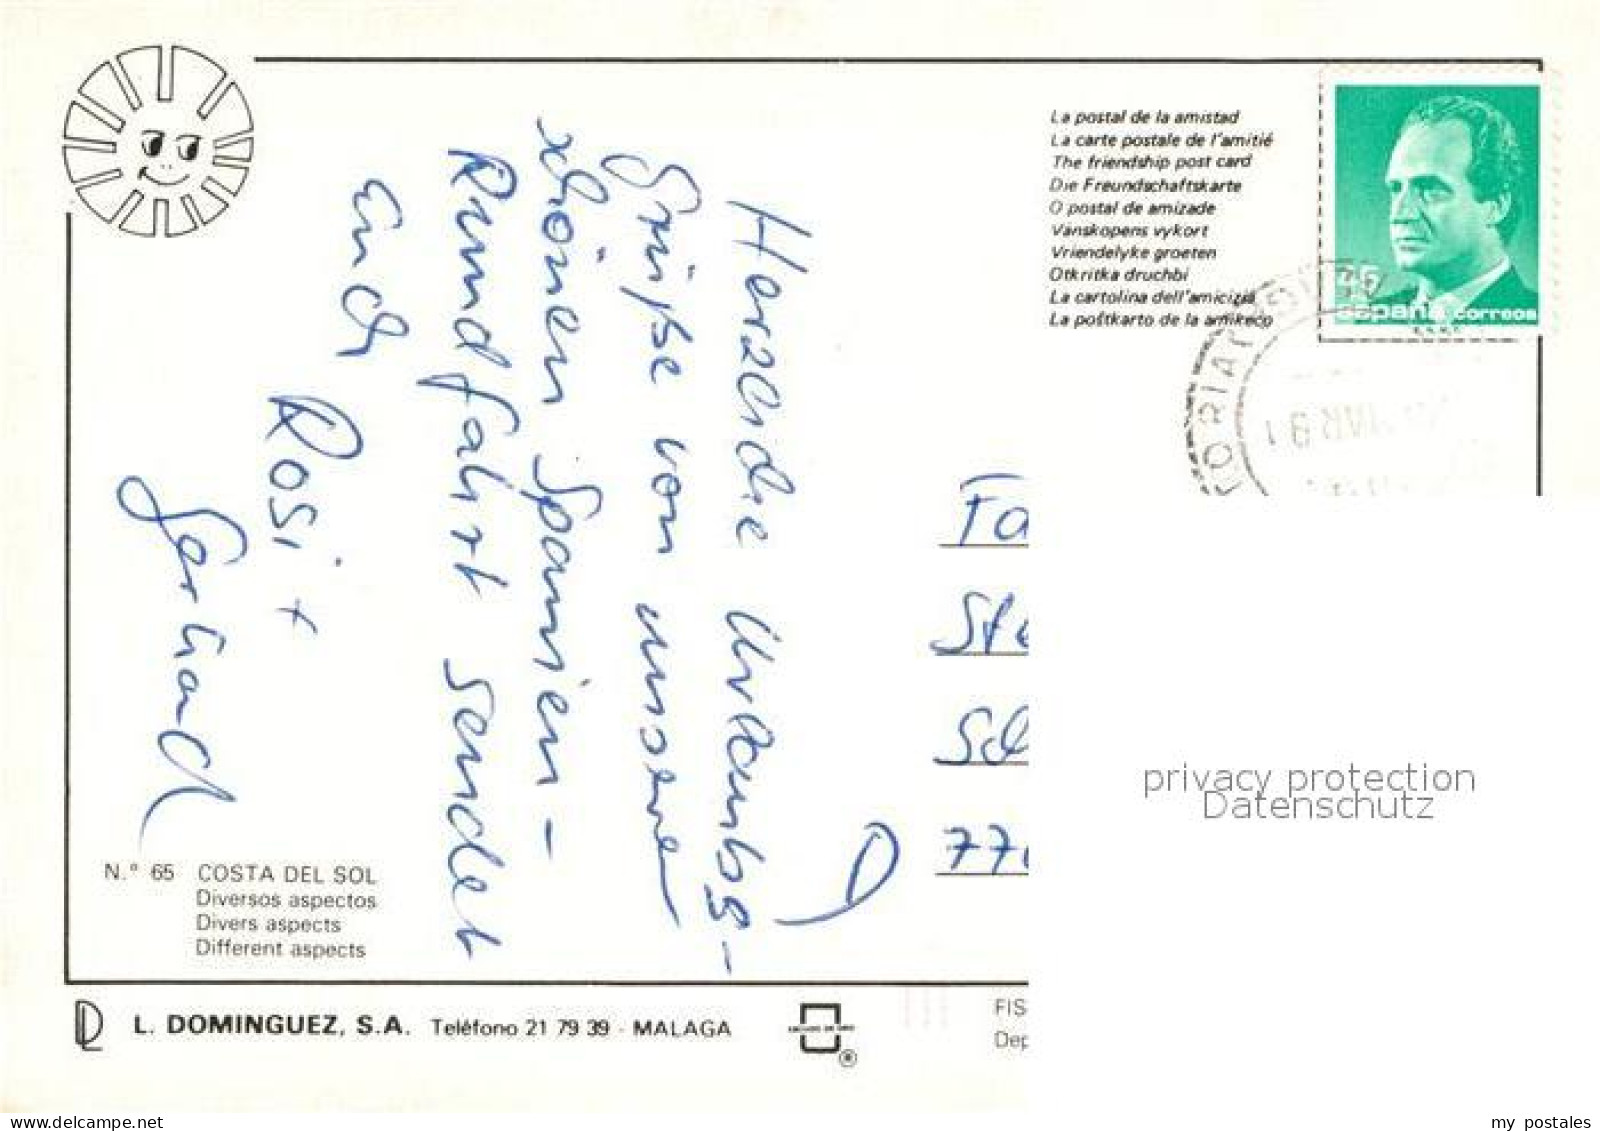 La postal de la amistad
La carte postale de l'amitié
The friendship post card
Die Freundschaftskarte
O postal de amizade
Vänskopens vykort
Vriendelyke groeten
Otkritka druchbi
La cartolina dell'amicizia
La poŝtkarto de la amikeco
45
españa correos
Herzliche Urlaubs-
Grüße von unserer
schönen Spanien-
Rundfahrt sendet
Euch
Rosi +
Gerhard
D
Fa
Ste
Sch
77
N.° 65 COSTA DEL SOL
Diversos aspectos
Divers aspects
Different aspects
L. DOMINGUEZ, S.A. Teléfono 21 79 39 - MALAGA
ESCUDO DE ORO
®
FIS
Dep
privacy protection
Datenschutz
delcampe.net
my_postales